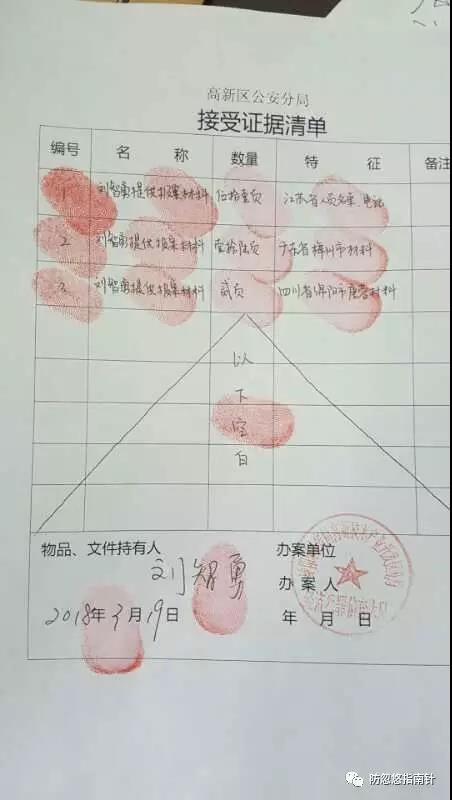 高新区公安分局
接受证据清单
编号 名称 数量 特征 备注
1 刘智勇提供报案材料 伍拾壹页 江苏省人员名单、电话
2 刘智勇提供报案材料 壹拾陆页 广东省梅州市材料
3 刘智勇提供报案材料 贰页 四川省绵阳市 材料
以
下
空
白
物品、文件持有人 办案单位
刘智勇 办案人
2018年3月19日 年 月 日
防忽悠指南针